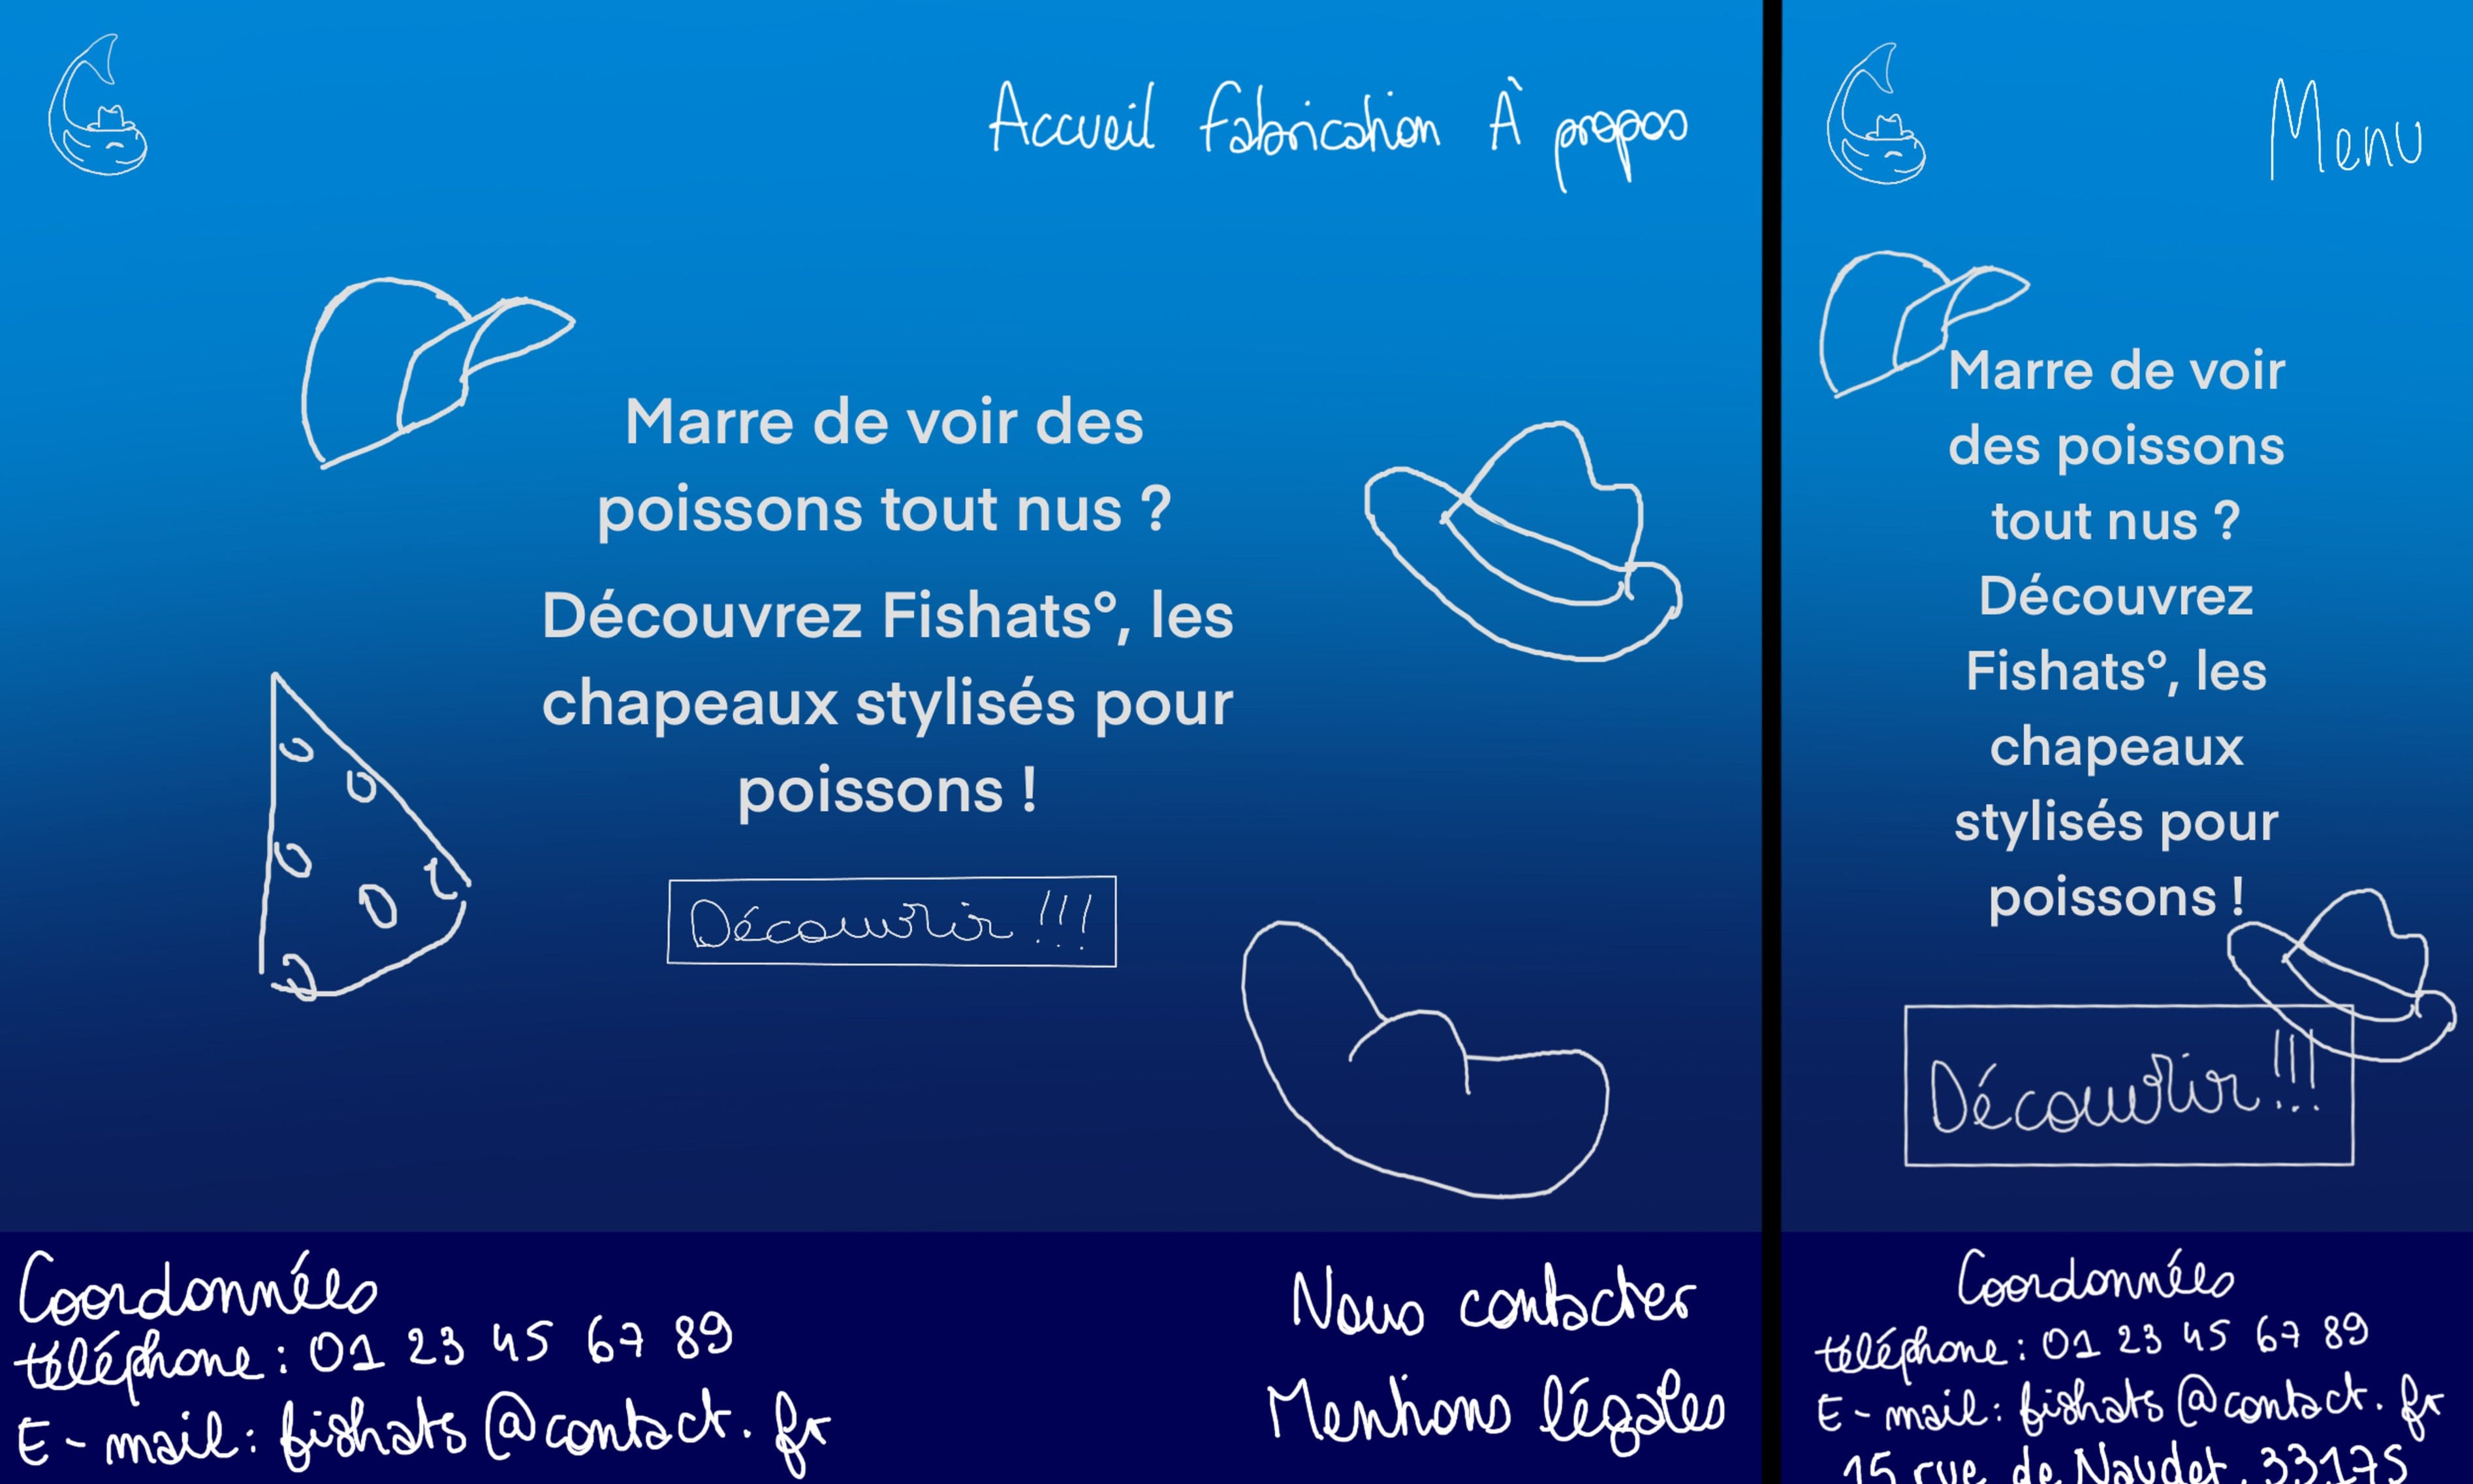 Accueil Fabrication À propos
Marre de voir des
poissons tout nus ?
Découvrez Fishats°, les
chapeaux stylisés pour
poissons !
Découvrir !!!
Coordonnées
téléphone : 01 23 45 67 89
E-mail : fishats@contact.fr
Nous contacter
Mentions légales
Menu
Marre de voir
des poissons
tout nus ?
Découvrez
Fishats°, les
chapeaux
stylisés pour
poissons !
Découvrir !!!
Coordonnées
téléphone : 01 23 45 67 89
E-mail : fishats@contact.fr
15 rue de Naudet, 33175